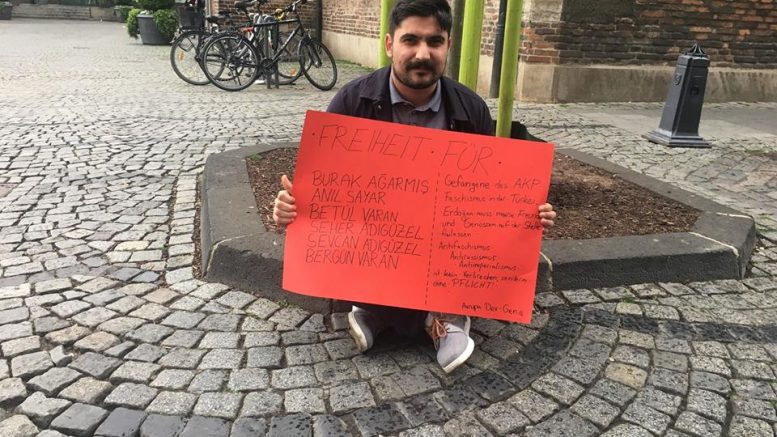 · FREIHEIT FÜR ·
BURAK AĞARMIŞ
ANIL SAYAR
BETÜL VARAN
SEHER ADIGÜZEL
SEVCAN ADIGÜZEL
BERGÜN VARAN
Gefangene des AKP
Faschismus in der Türkei
Erdoğan muss meine Freunde
und Genossen auf der Stelle
Antifaschismus
Antirassismus
Antiimperialismus
ist kein Verbrechen, sondern
eine PFLICHT!
Avrupa Dev-Genç